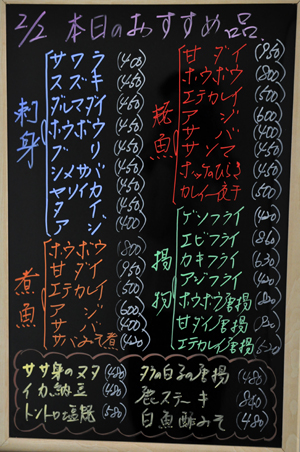 2/2 本日のおすすめ品
刺身
サワラ (400)
スズキ (450)
ダルマダイ (450)
ホウボウ (450)
ブリ (450)
シメサバ (450)
ヤリイカ (450)
タイ (450)
アジ (400)
煮魚
ホウボウ (800)
甘ダイ (950)
エテカレイ (500)
アジ (600)
サバ (400)
サバみそ煮 (400)
焼魚
甘ダイ (950)
ホウボウ (800)
エテカレイ (500)
アジ (600)
サバ (400)
サンマ (450)
ホッケのひらき
カレイ一夜干 (500)
揚物
ゲソフライ
エビフライ
カキフライ
アジフライ
ホウボウ唐揚 (800)
甘ダイ唐揚
エテカレイ唐揚
ササ身のヌタ (480)
イカ納豆 (480)
トントロ塩焼 (580)
タラの白子の唐揚 (480)
鹿ステーキ (840)
白魚酢みそ (480)